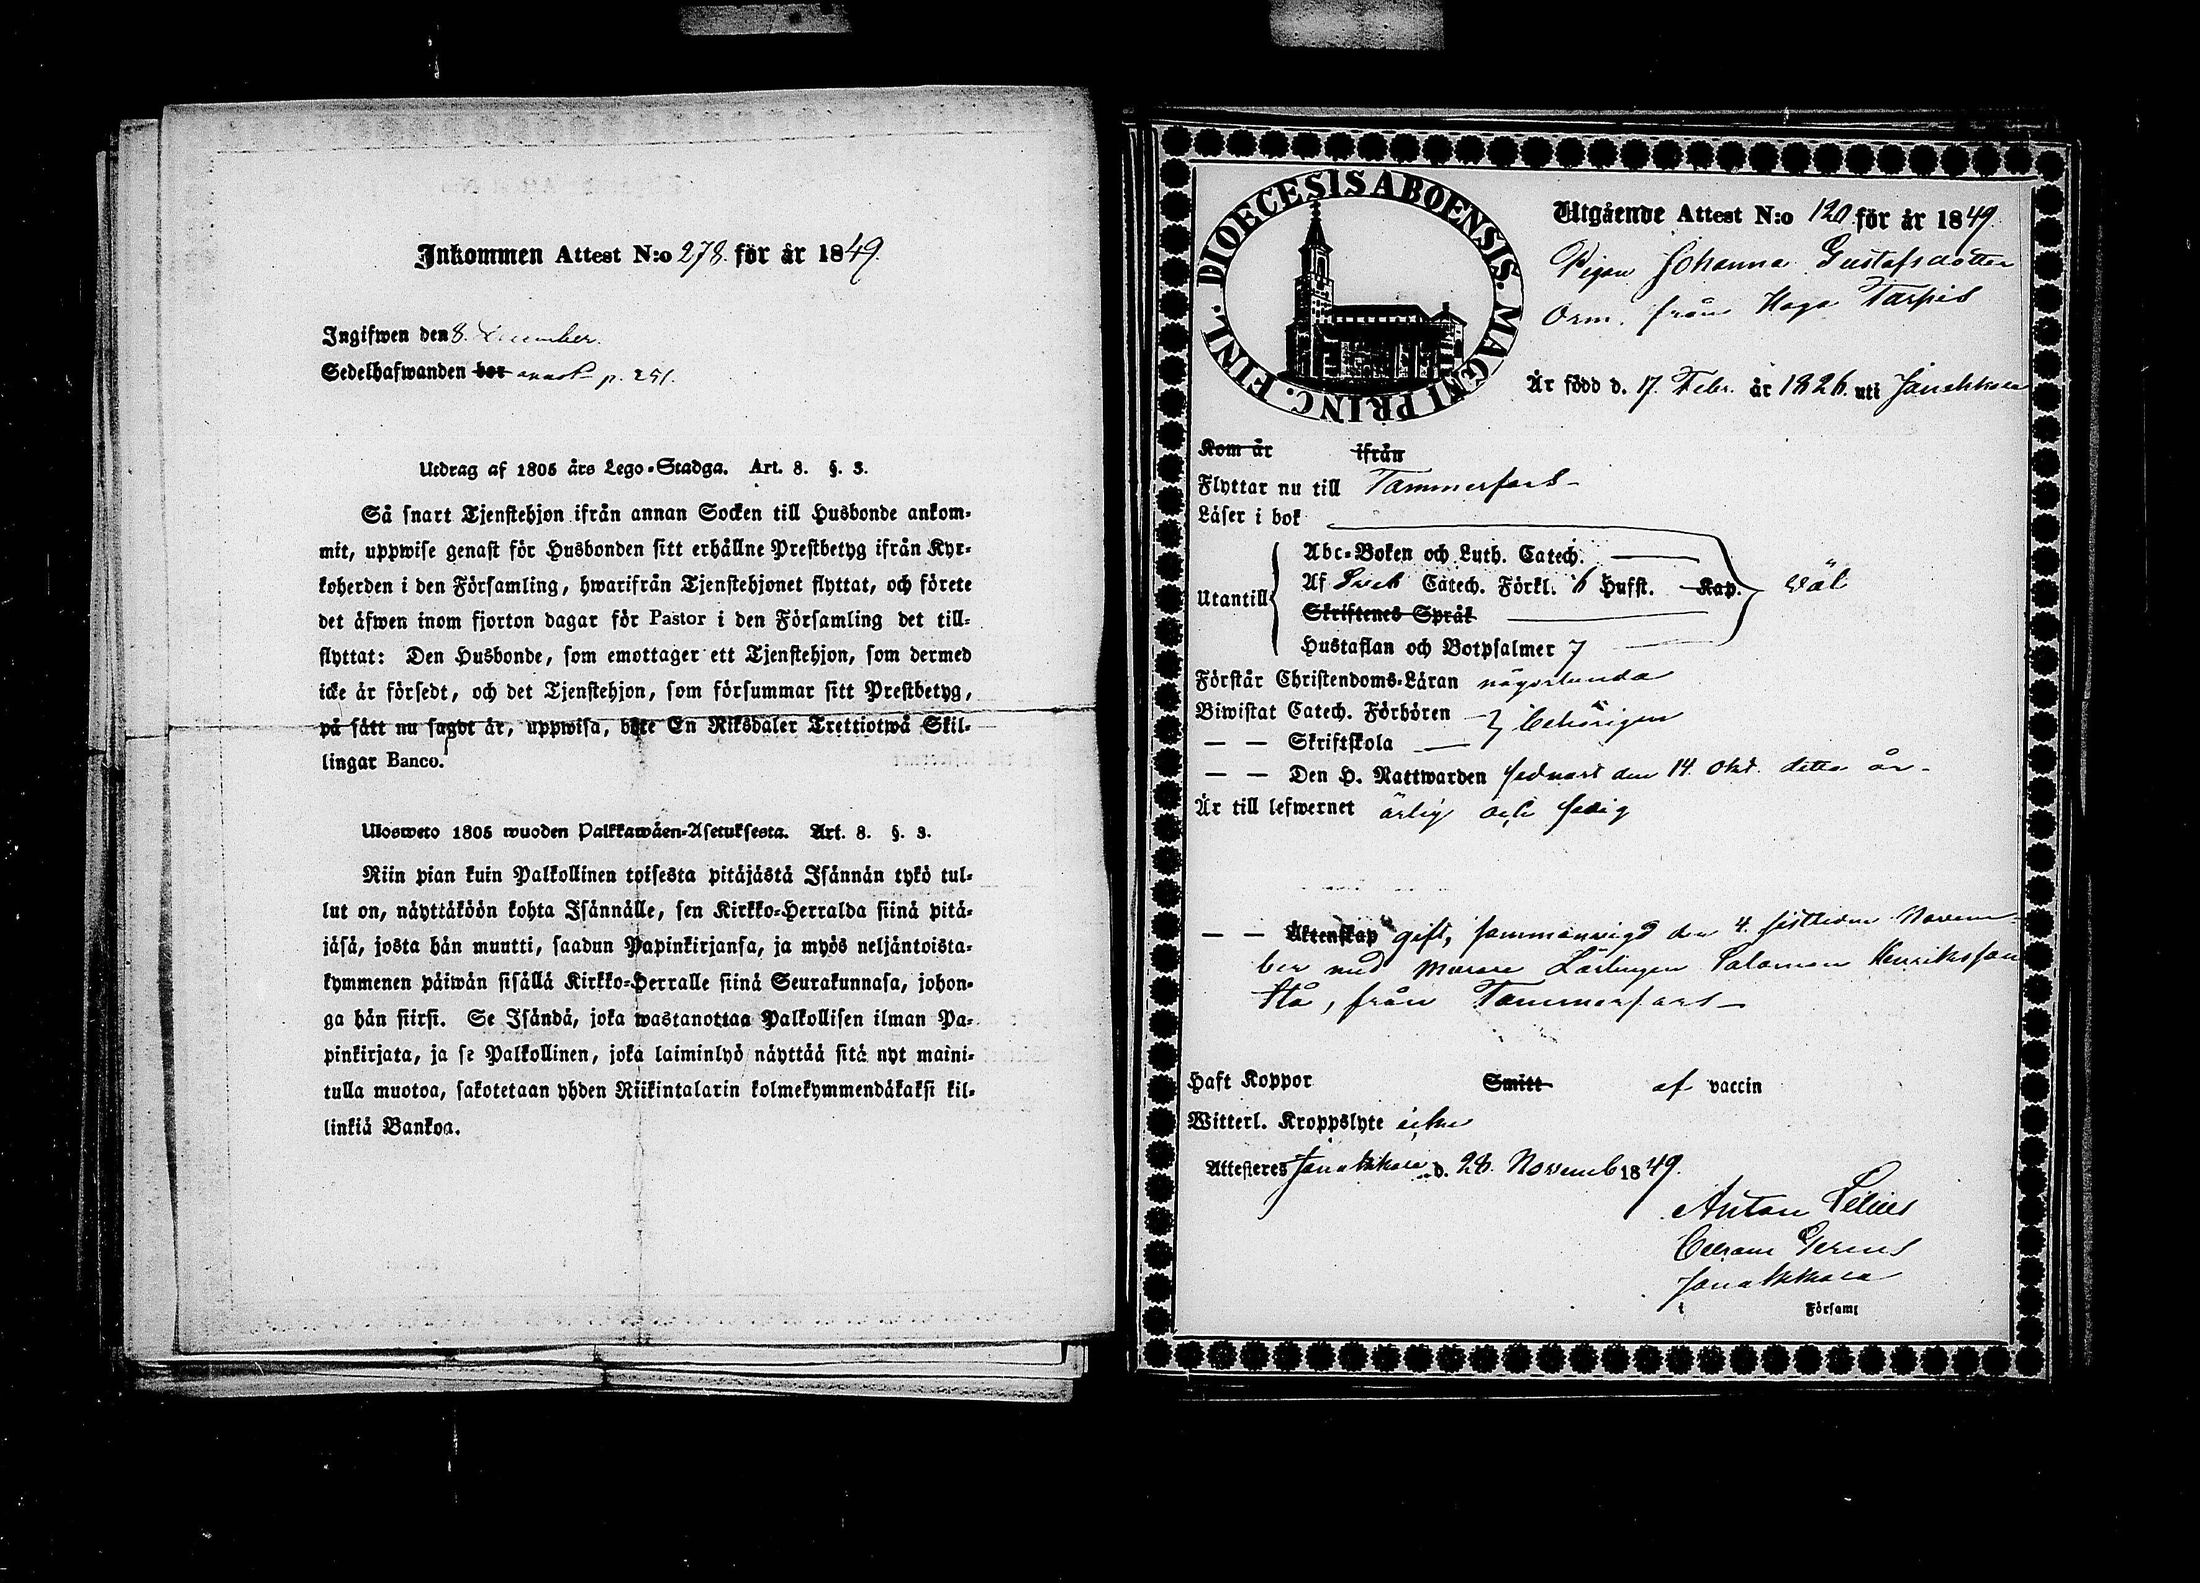 Inkommen Attest N:o 278. för år 1849.
Ingifwen den 8. December.
Sedelhafwanden bor p. 251.
Utdrag af 1805 års Lego-Stadga. Art. 8. §. 3.
Så snart Tjenstehjon ifrån annan Socken till Husbonde ankom-
mit, uppwise genast för Husbonden sitt erhållne Prestbetyg ifrån Kyr-
koherden i den Församling, hwarifrån Tjenstehjonet flyttat, och förete
det äfwen inom fjorton dagar för Pastor i den Församling det till-
flyttat: Den Husbonde, som emottager ett Tjenstehjon, som dermed
icke är försedt, och det Tjenstehjon, som försummar sitt Prestbetyg,
på sätt nu sagdt är, uppwisa, böte En Riksdaler Trettiotwå Skil-
lingar Banco.
Ulosweto 1805 wuoden Palkkawäen-Asetuksesta. Art. 8. §. 3.
Niin pian kuin Palkollinen toisesta pitäjästä Isännän tykö tul-
lut on, näyttäköön kohta Isännälle, sen Kirkko-Herralda siinä pitä-
jäsä, josta hän muutti, saadun Papinkirjansa, ja myös neljäntoista-
kymmenen päiwän sisällä Kirkko-Herralle siinä Seurakunnasa, johon-
ga hän siirsi. Se Isändä, joka wastanottaa Palkollisen ilman Pa-
pinkirjata, ja se Palkollinen, joka laiminlyö näyttää sitä nyt maini-
tulla muotoa, sakotetaan yhden Riikintalarin kolmekymmendäkaksi kil-
linkiä Bankoa.
DIOECESIS ABOENSIS. MAGNI PRINC. FINL.
Utgående Attest N:o 120 för år 1849.
Pigan Johanna Gustafsdotter
Orm. från Haga Tarpis
Är född d. 17. Febr. år 1826. uti Janakkala
Kom år ifrån
Flyttar nu till Tammerfors
Läser i bok
Abc-Boken och Luth. Catech.
Utantill Af Sveb Catech. Förkl. 6 Hufst. Kap. väl
Skriftenes Språk
Hustaflan och Botpsalmer 7
Förstår Christendoms-Läran någorlunda
Biwistat Catech. Förhören behörigen
— — Skriftskola
— — Den H. Nattwarden sednast den 14. Okt. detta år.
Är till lefwernet ärlig och sedig
— — Äktenskap gift, sammanvigd den 4. sistledne Novem-
ber med Murare Lärlingen Salomon Henriksson
Stå, från Tammerfors
Haft Koppor Smitt af vaccin
Witterl. Kroppslyte icke
Attesteras Janakkala d. 28. Novemb 1849.
Anton
Janakkala
i Församl